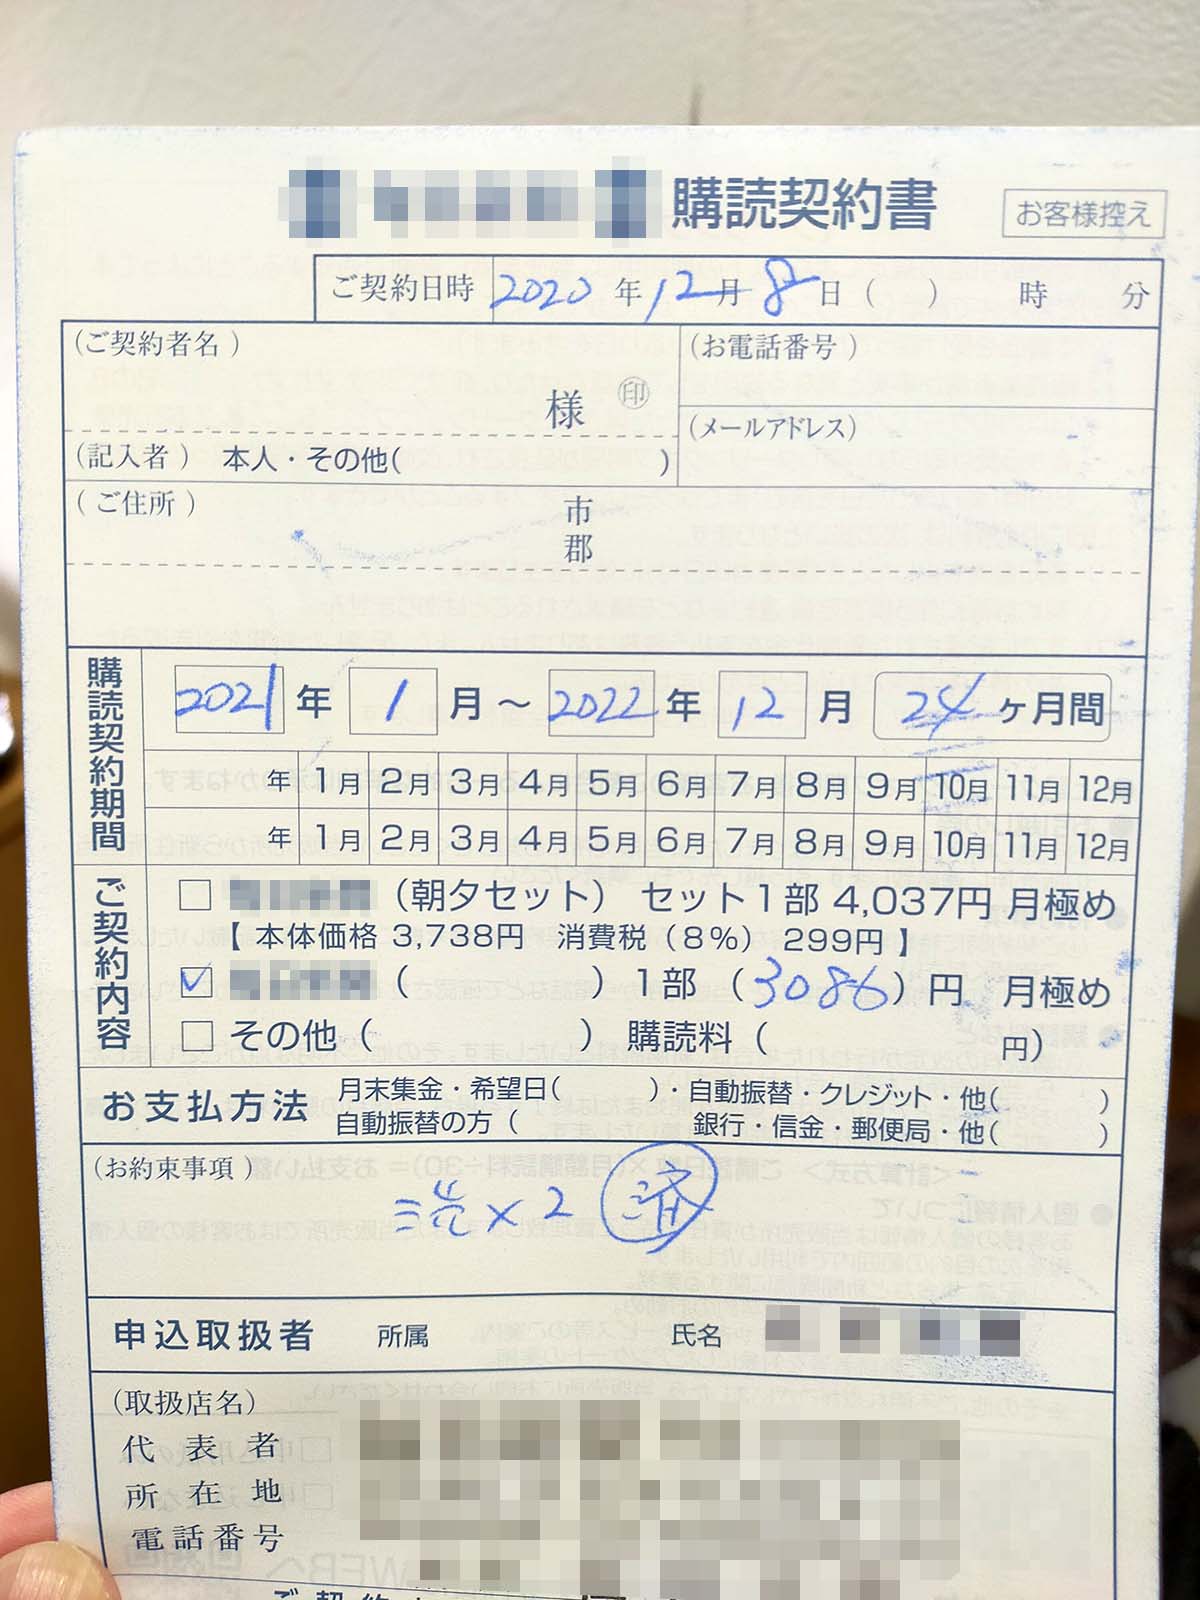 購読契約書 お客様控え
ご契約日時 2020年12月8日( ) 時 分
(ご契約者名)
様 ㊞
(お電話番号)
(メールアドレス)
(記入者) 本人・その他( )
(ご住所) 市
郡
購読契約期間
2021年 1月~2022年 12月 24ヶ月間
年 1月 2月 3月 4月 5月 6月 7月 8月 9月 10月 11月 12月
年 1月 2月 3月 4月 5月 6月 7月 8月 9月 10月 11月 12月
ご契約内容
(朝夕セット) セット1部 4,037円 月極め
【本体価格 3,738円 消費税(8%) 299円】
( )1部 (3086)円 月極め
その他( ) 購読料( 円)
お支払方法
月末集金・希望日( )・自動振替・クレジット・他( )
自動振替の方( 銀行・信金・郵便局・他( )
(お約束事項)
洗×2 済
申込取扱者 所属 氏名
(取扱店名)
代表者
所在地
電話番号